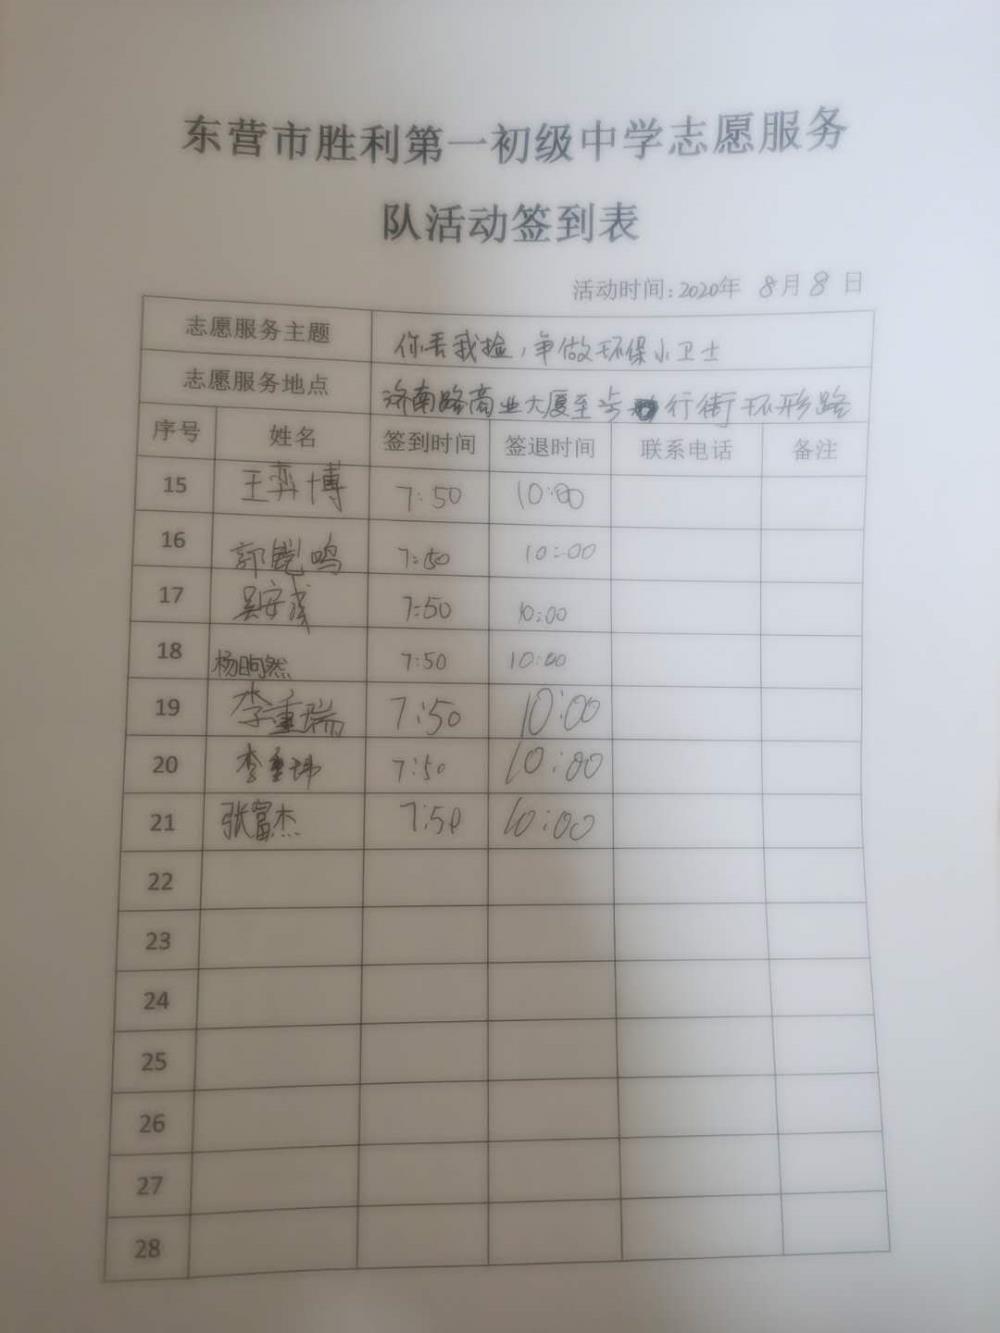 东营市胜利第一初级中学志愿服务
队活动签到表
活动时间:2020年 8月8日
志愿服务主题 你丢我捡,争做环保小卫士
志愿服务地点 济南路商业大厦至步行街环形路
序号 姓名 签到时间 签退时间 联系电话 备注
15 王弈博 7:50 10:00
16 郭 鸣 7:50 10:00
17 吴安 7:50 10:00
18 杨昫然 7:50 10:00
19 李重瑞 7:50 10:00
20 李重玮 7:50 10:00
21 张富杰 7:50 10:00
22
23
24
25
26
27
28